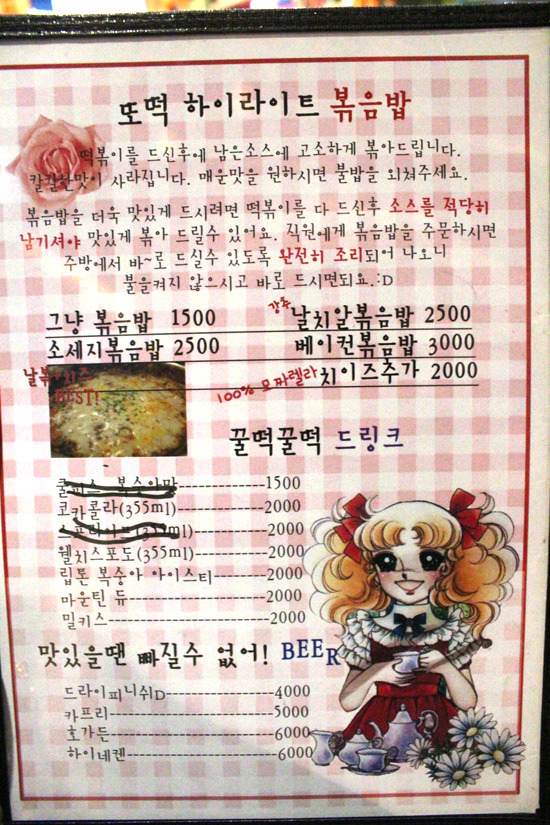 또떡 하이라이트 볶음밥
떡볶이를 드신후에 남은소스에 고소하게 볶아드립니다.
칼칼한맛이 사라집니다. 매운맛을 원하시면 불밥을 외쳐주세요.
볶음밥을 더욱 맛있게 드시려면 떡볶이를 다 드신후 소스를 적당히
남기셔야 맛있게 볶아 드릴수 있어요. 직원에게 볶음밥을 주문하시면
주방에서 바~로 드실수 있도록 완전히 조리되어 나오니
불을켜지 않으시고 바로 드시면되요.:D
그냥 볶음밥 1500
강추 날치알볶음밥 2500
소세지볶음밥 2500
베이컨볶음밥 3000
100% 모짜렐라 치이즈추가 2000
날볶+치즈
BEST!
꿀떡꿀떡 드링크
쿨피스 복숭아맛--------------1500
코카콜라(355ml)-----------2000
스프라이트(355ml)----------2000
웰치스포도(355ml)---------2000
립톤 복숭아 아이스티-------2000
마운틴 듀------------------2000
밀키스---------------------2000
맛있을땐 빠질수 없어! BEER
드라이피니쉬D--------------4000
카프리---------------------5000
호가든---------------------6000
하이네켄-------------------6000